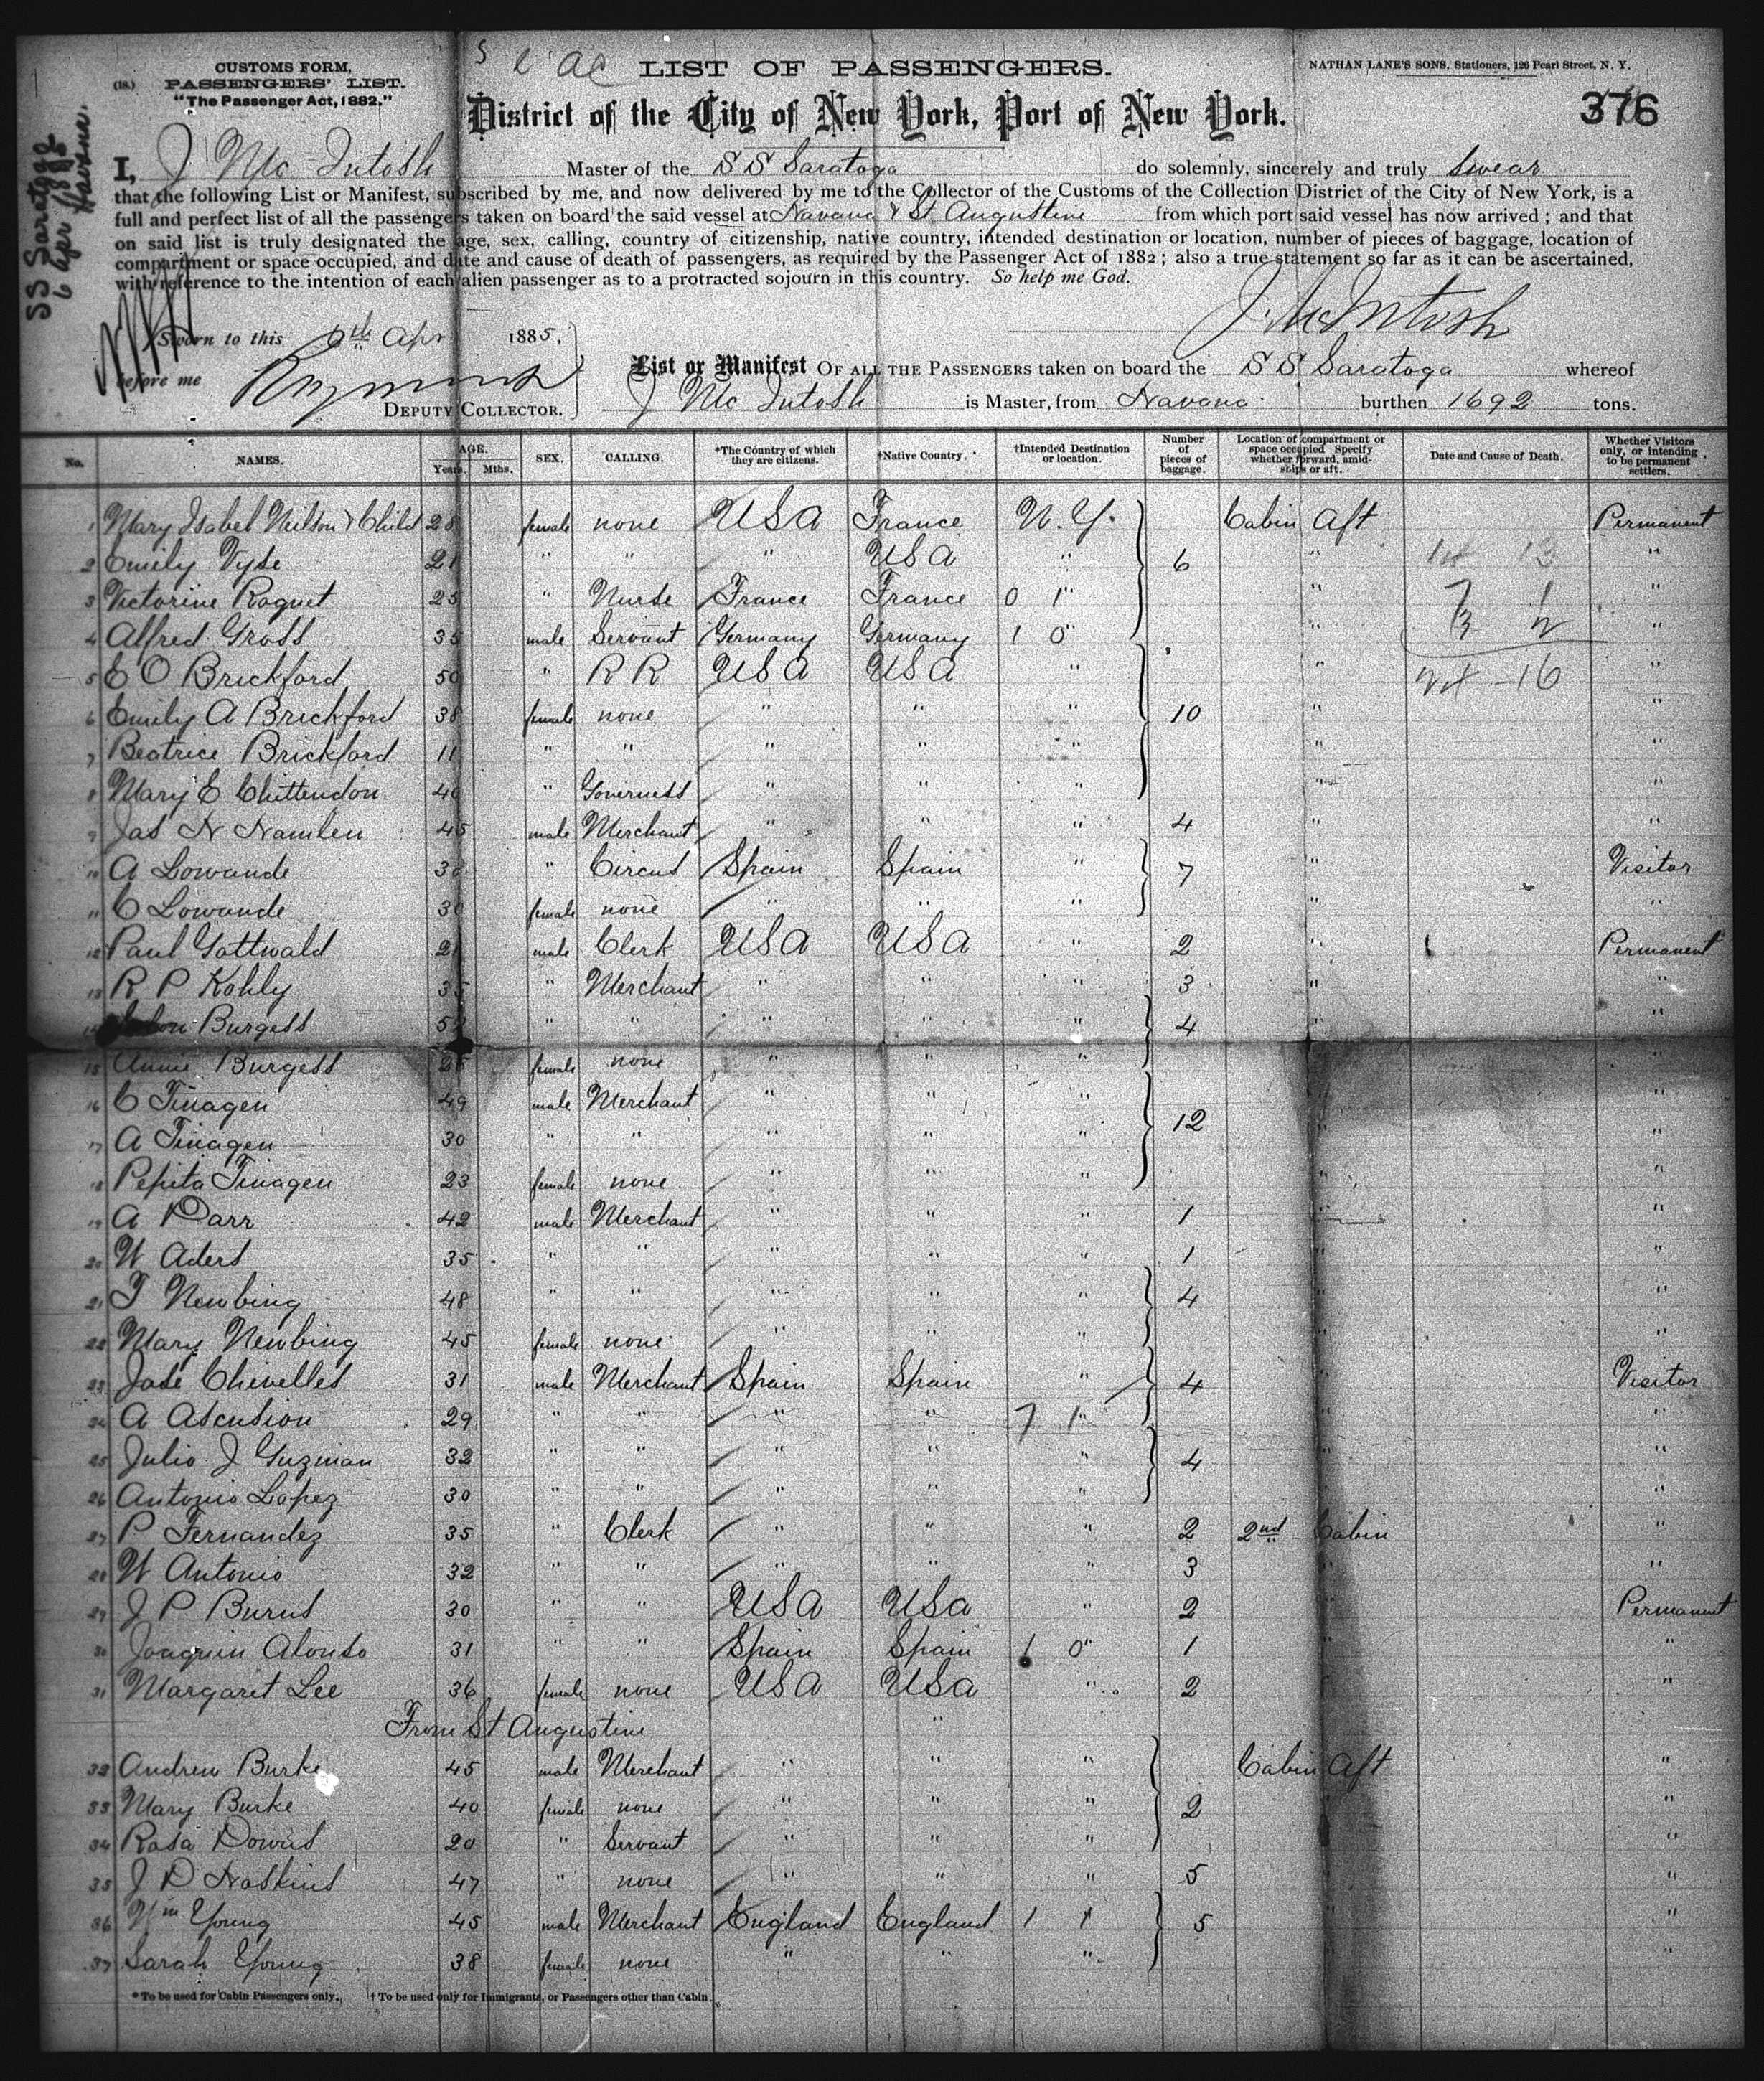 CUSTOMS FORM,
(18.) PASSENGERS' LIST.
"The Passenger Act, 1882."
LIST OF PASSENGERS.
NATHAN LANE'S SONS, Stationers, 126 Pearl Street, N. Y.
District of the City of New York, Port of New York.
376
SS Saratoga
6 Apr 1885
Havana.
I, J McIntosh Master of the SS Saratoga do solemnly, sincerely and truly Swear
that the following List or Manifest, subscribed by me, and now delivered by me to the Collector of the Customs of the Collection District of the City of New York, is a
full and perfect list of all the passengers taken on board the said vessel at Havana & St Augustine from which port said vessel has now arrived ; and that
on said list is truly designated the age, sex, calling, country of citizenship, native country, intended destination or location, number of pieces of baggage, location of
compartment or space occupied, and date and cause of death of passengers, as required by the Passenger Act of 1882 ; also a true statement so far as it can be ascertained,
with reference to the intention of each alien passenger as to a protracted sojourn in this country. So help me God.
J. McIntosh
Sworn to this 6th Apr 1885,
before me
DEPUTY COLLECTOR.
List or Manifest OF ALL THE PASSENGERS taken on board the SS Saratoga whereof
J McIntosh is Master, from Havana burthen 1692 tons.
No. NAMES. AGE. Years. Mths. SEX. CALLING. *The Country of which they are citizens. †Native Country. †Intended Destination or location. Number of pieces of baggage. Location of compartment or space occupied Specify whether forward, amidships or aft. Date and Cause of Death. Whether Visitors only, or intending to be permanent settlers.
1 Mary Isabel Neilson & Child 28 female none USA France N.Y. Cabin Aft Permanent
2 Emily Vyse 21 " " " USA " 6 " 13 "
3 Victorine Raguet 25 " Nurse France France 0 1 " " 7 1 "
4 Alfred Gross 35 male Servant Germany Germany 1 0 " " "
5 E O Brickford 50 " R R USA USA " " 16 "
6 Emily A Brickford 38 female none " " " 10 " "
7 Beatrice Brickford 11 " " " " " " "
8 Mary E Chittendon 40 " Governess " " " " "
9 Jas N Namlen 45 male Merchant " " " 4 " "
10 A Lowande 38 " Circus Spain Spain " 7 " Visitor
11 C Lowande 30 female none " " " " "
12 Paul Gottwald 21 male Clerk USA USA " 2 " Permanent
13 R P Kohly 35 " Merchant " " " 3 " "
14 Burgess 52 " " " " " 4 " "
15 Annie Burgess 25 female none " " " "
16 C Tinagen 49 male Merchant " " " "
17 A Tinagen 30 " " " " " 12 " "
18 Pepita Tinagen 23 female none " " " " "
19 A Parr 42 male Merchant " " " 1 " "
20 W Aders 35 " " " " " 1 " "
21 T Newbing 48 " " " " " 4 " "
22 Mary Newbing 45 female none " " " " "
23 José Chivelles 31 male Merchant Spain Spain " 4 " Visitor
24 A Ascusion 29 " " " " 7 1 " " "
25 Julio J Guzman 32 " " " " " 4 " "
26 Antonio Lopez 30 " " " " " " "
27 P Fernandez 35 " Clerk " " " 2 2nd Cabin "
28 W Antonio 32 " " " " " 3 " "
29 J P Burns 30 " " USA USA " 2 " Permanent
30 Joaquin Alonso 31 " " Spain Spain 1 0 " 1 " "
31 Margaret Lee 36 female none USA USA " 2 " "
From St Augustine "
32 Andrew Burke 45 male Merchant " " " Cabin Aft "
33 Mary Burke 40 female none " " " 2 " "
34 Rosa Downs 20 " Servant " " " " "
35 J D Haskins 47 " none " " " 5 " "
36 Wm Young 45 male Merchant England England 1 1 5 " "
37 Sarah Young 38 female none " " " " "
*To be used for Cabin Passengers only. †To be used only for Immigrants, or Passengers other than Cabin.